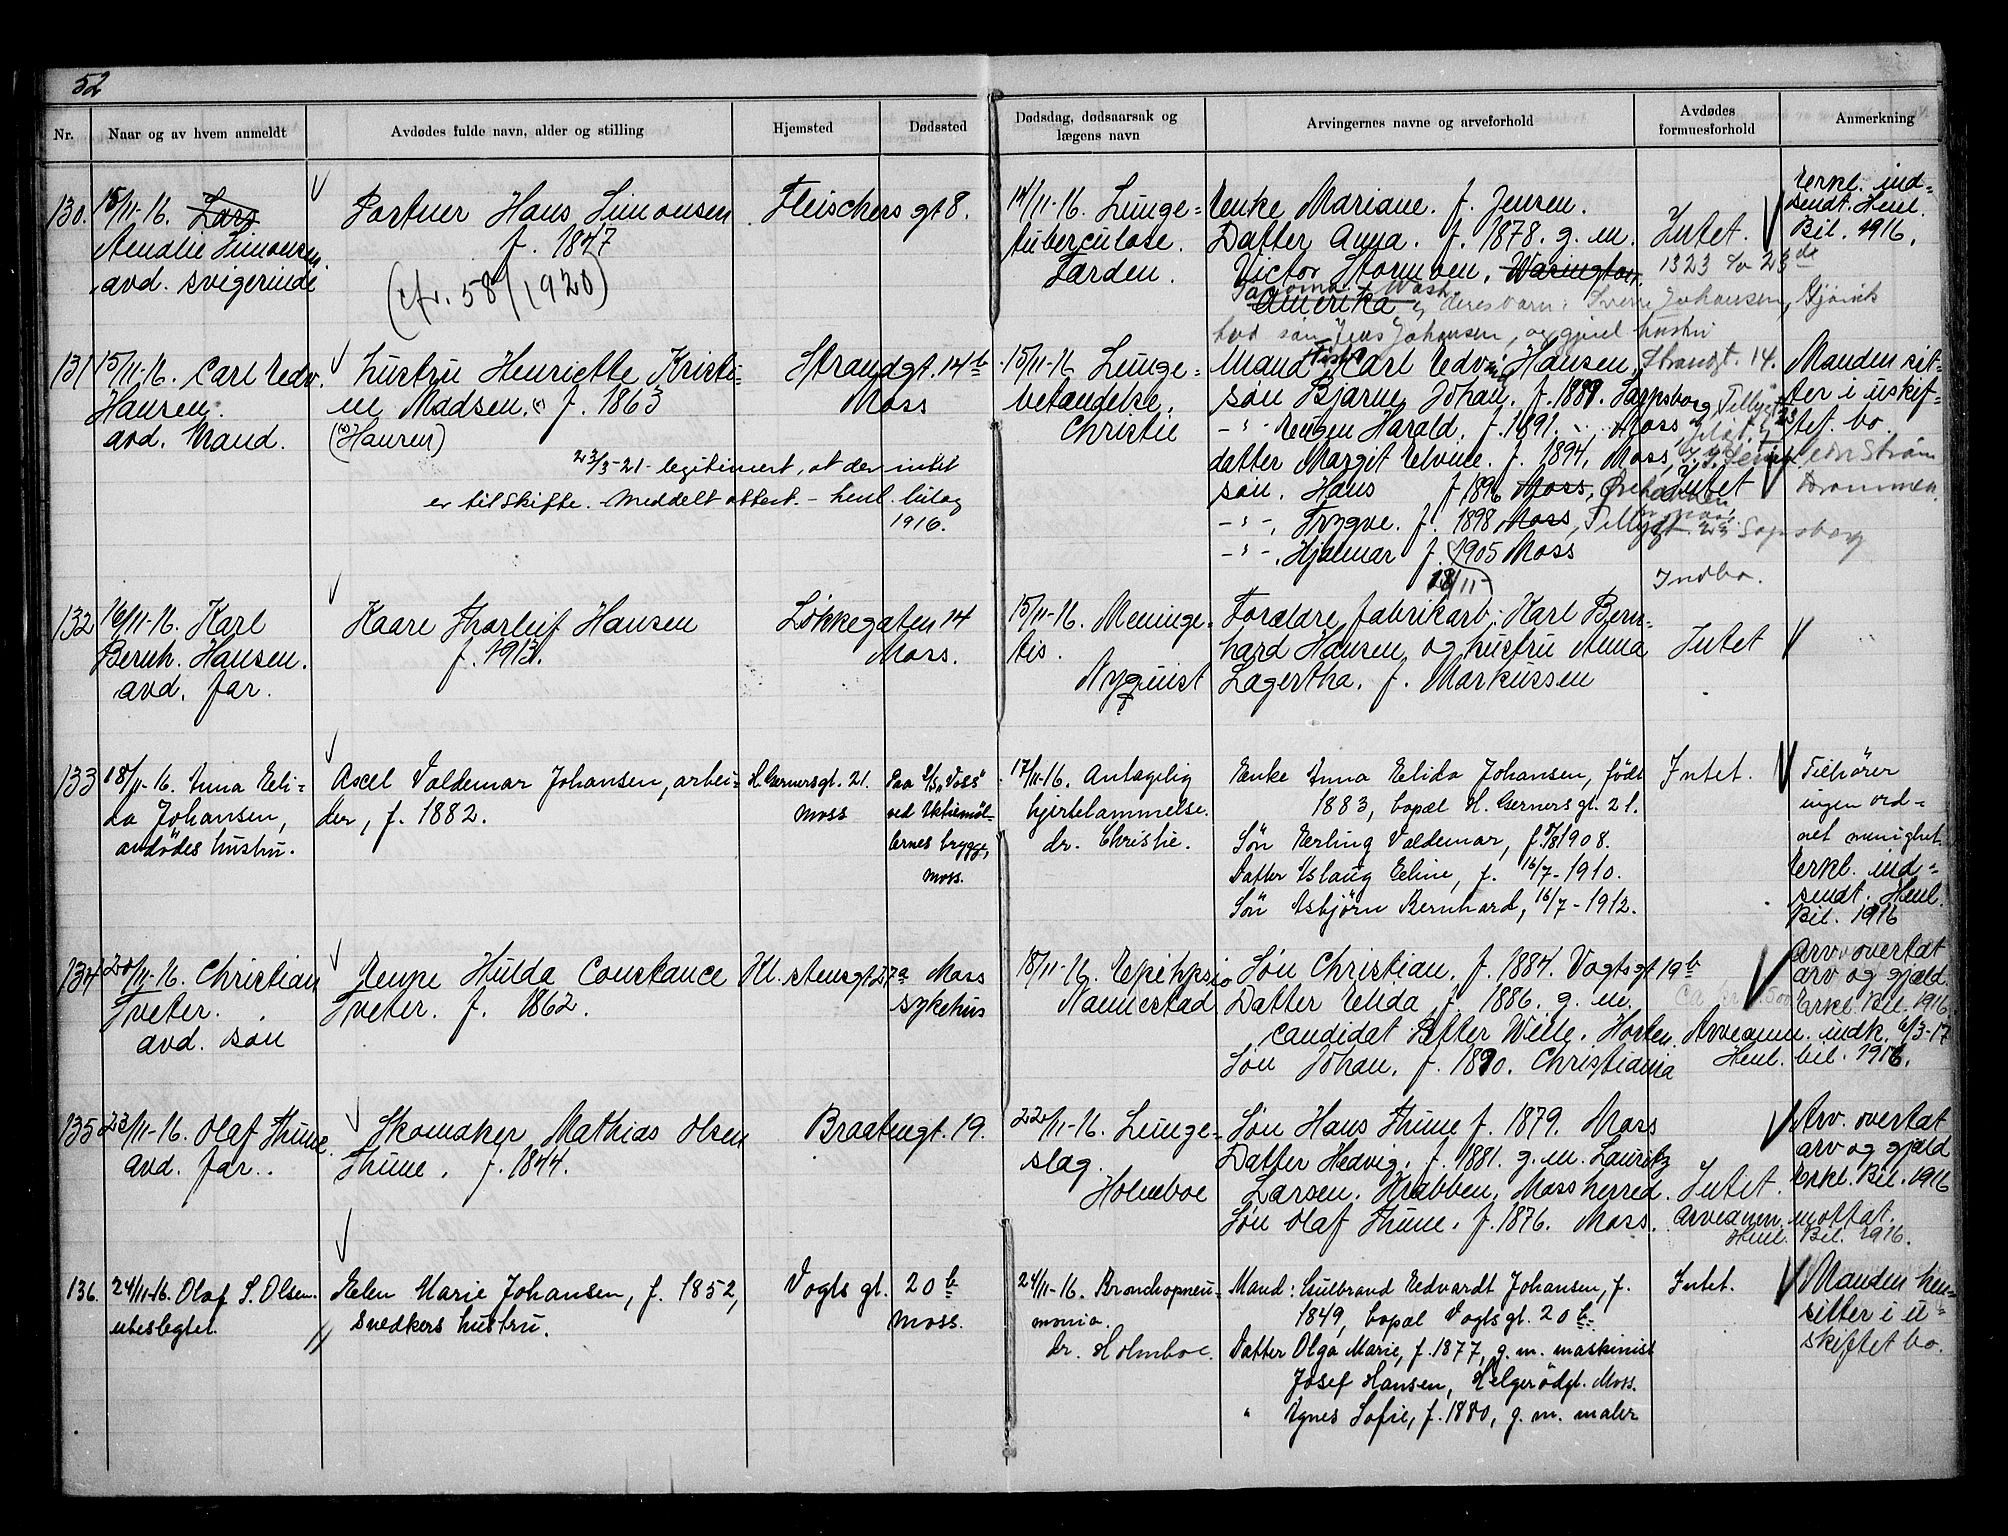 52
Nr.
Naar og av hvem anmeldt
Avdødes fulde navn, alder og stilling
Hjemsted
Dødssted
Dødsdag, dødsaarsak og lægens navn
Arvingernes navne og arveforhold
Avdødes formuesforhold
Anmerkning
130.
15/11-16. Lars
Amalie Simonsen
avd. svigerinde
Portner Hans Simonsen
f. 1847
(cfr. 58/1920)
Fleischers gt 8.
14/11-16. Lunge-
tuberculose.
Farden.
Enke Mariane. f. Jensen.
Datter Anna. f. 1878. g. m.
Victor Stormoen, Warington,
Tacoma Wash.
Amerika
Sverre Johansen, Gjövik
Jens Johansen,
Intet.
1323
Erkl. ind-
sendt. Henl.
Bil. 1916.
131
15/11-16. Carl Edv.
Hansen.
avd. Mand.
Hustru Henriette Kristi-
ne Madsen. f. 1863
(Hansen)
23/5-21 legitimert, at der intet
er til skifte. Meddelt attest. - henl. bilag
1916.
Strandgt. 14b
Moss
15/11-16 Lunge-
betændelse.
Christie
Mand Carl Edvin Hansen, Strandgt. 14.
søn Bjarne Johan. f. 1889. Sarpsborg
- " - Eugen Harald. f. 1891. Moss
datter Margit Elvine. f. 1894. Moss,
søn. Hans f 1896 Moss,
- " -, Trygve. f. 1898 Moss,
- " -. Hjalmar f. 1905 Moss
18/11-
Intet
Sarpsborg
Indbo.
Manden sit-
ter i uskif-
tet bo.
Drammen.
132
16/11-16. Karl
Bernh. Hansen.
avd. far.
Kaare Thorleif Hansen
f. 1913.
Løkkegaten 14
Moss.
15/11-16. Meninge-
tis.
Nyquist
Forældre, fabrikarb. Karl Bern-
hard Hansen og hustru Anna
Lagertha. f. Markussen
Intet
133
18/11-16. Anna Eli-
da Johansen,
avdødes hustru.
Axel Valdemar Johansen, arbei-
der, f. 1882.
H. Gernersgt. 21.
Moss
Paa S/S "Voss"
ved Aktiemøl-
lernes brygge,
Moss.
17/11-16. Antagelig
hjertelammelse.
dr. Christie.
Enke Anna Elida Johansen, født
1883, bopæl H. Gerners gt. 21.
Søn Erling Valdemar, f. 1908.
Datter Aslaug Eline, f. 16/7-1910.
Søn Asbjörn Bernhard, 16/7-1912.
Intet.
Tilhører
ingen ord-
net menighet
Erkl. ind-
sendt. Henl.
Bil. 1916
134
20/11-16. Christian
Tveter.
avd. søn
Enke Hulda Constance
Tveter. f. 1862.
Kl. stensgt 27a
Moss
sykehus
18/11-16.
Nannestad
Søn Christian. f. 1884. Vogtsgt 19b
Datter Elida f. 1886. g. m.
candidat Petter Weile. Horten.
Søn Johan. f. 1890. Christiania
Arveanm. indk. 6/3-17
Henl. bil. 1916.
Arv. overtat
arv og gjæld.
Erkl. Bil. 1916.
135
23/11-16. Olaf Thune.
avd. far.
Skomaker Mathias Olsen
Thune. f. 1844.
Braatengt. 19.
22/11-16. Lunge-
slag.
Holmboe
Søn Hans Thune f. 1879. Moss
Datter Hedvig. f. 1881. g. m. Lauritz
Larsen. Krabben, Moss herred.
Søn Olaf Thune. f. 1876. Moss.
Intet.
Arveanm. mottat.
Henl. Bil. 1916.
Arv. overtat
arv og gjæld
Erkl. Bil. 1916
136.
24/11-16. Olaf S. Olsen.
ubeslegtet.
Elen Marie Johansen, f. 1852,
snedkers hustru.
Vogts gt. 20b
Moss.
24/11-16. Bronchopneu-
monia.
dr. Holmboe.
Mand: Gulbrand Edvardt Johansen, f.
1849, bopæl Vogtsgt. 20b
Datter Olga Marie, f. 1877, g. m. maskinist
Josef Hansen, Helgerödgt. Moss.
" Agnes Sofie, f. 1880, g. m. maler
Intet.
Manden hen-
sitter i u-
skiftet bo.